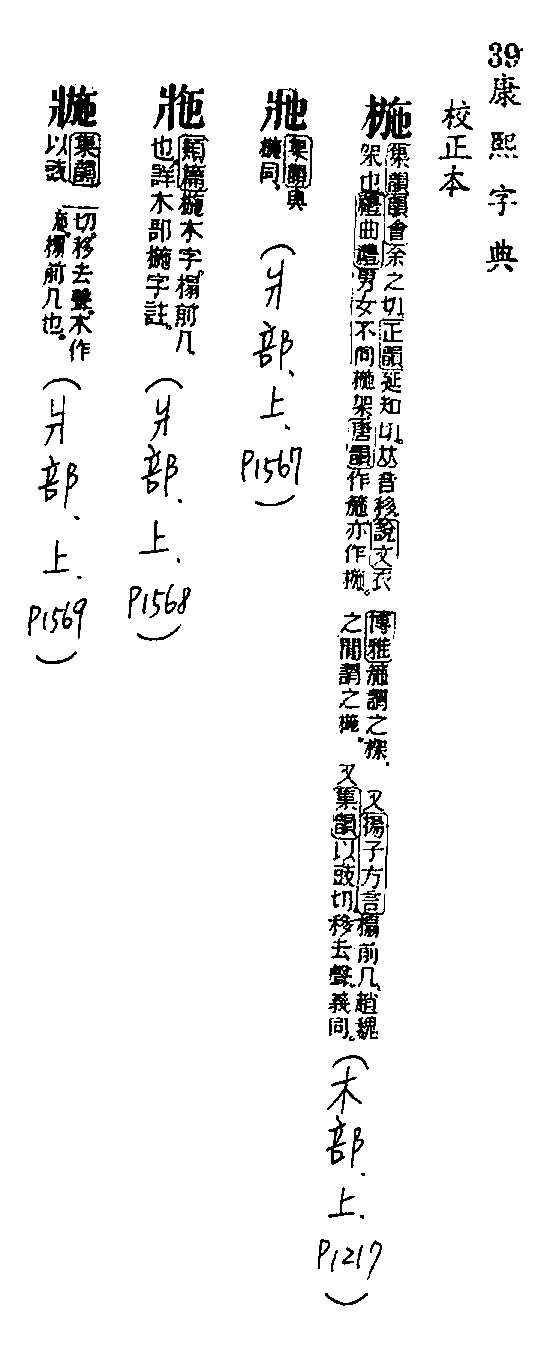 39康熙字典
校正本
椸
集韻韻會余之切正韻延知切。𠀤音移說文衣
架也禮曲禮男女不同椸架唐韻作箷亦作。
博雅箷謂之榤、又揚子方言榻前几趙魏
之間謂之椸。又集韻以豉切移去聲義同。
(木部、上、P1217)
集韻與
椸同。
(爿部、上、P1567)
類篇椸木字榻前几
也詳木部椸字註。
(爿部、上、P1568)
集韻
以豉
切移去聲。本作
椸榻前几也。
(爿部、上、P1569)